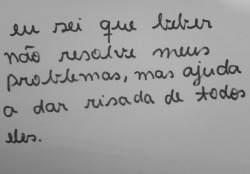 eu sei que beber
não resolve meus
problemas, mas ajuda
a dar risada de todos
eles.